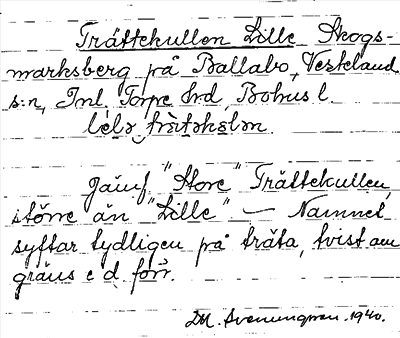 Trättekullen Lille Skogs-
marksberg på Ballabo, Vestland
s:n, Inl. Torpe hrd, Bohus l.
lìlə trǽtəkələn.
Jämf "Store" Trättekullen,
större än "Lille" — Namnet
syftar tydligen på träta, tvist om
gräns e d. förr.
DM. Svenungsson. 1940.